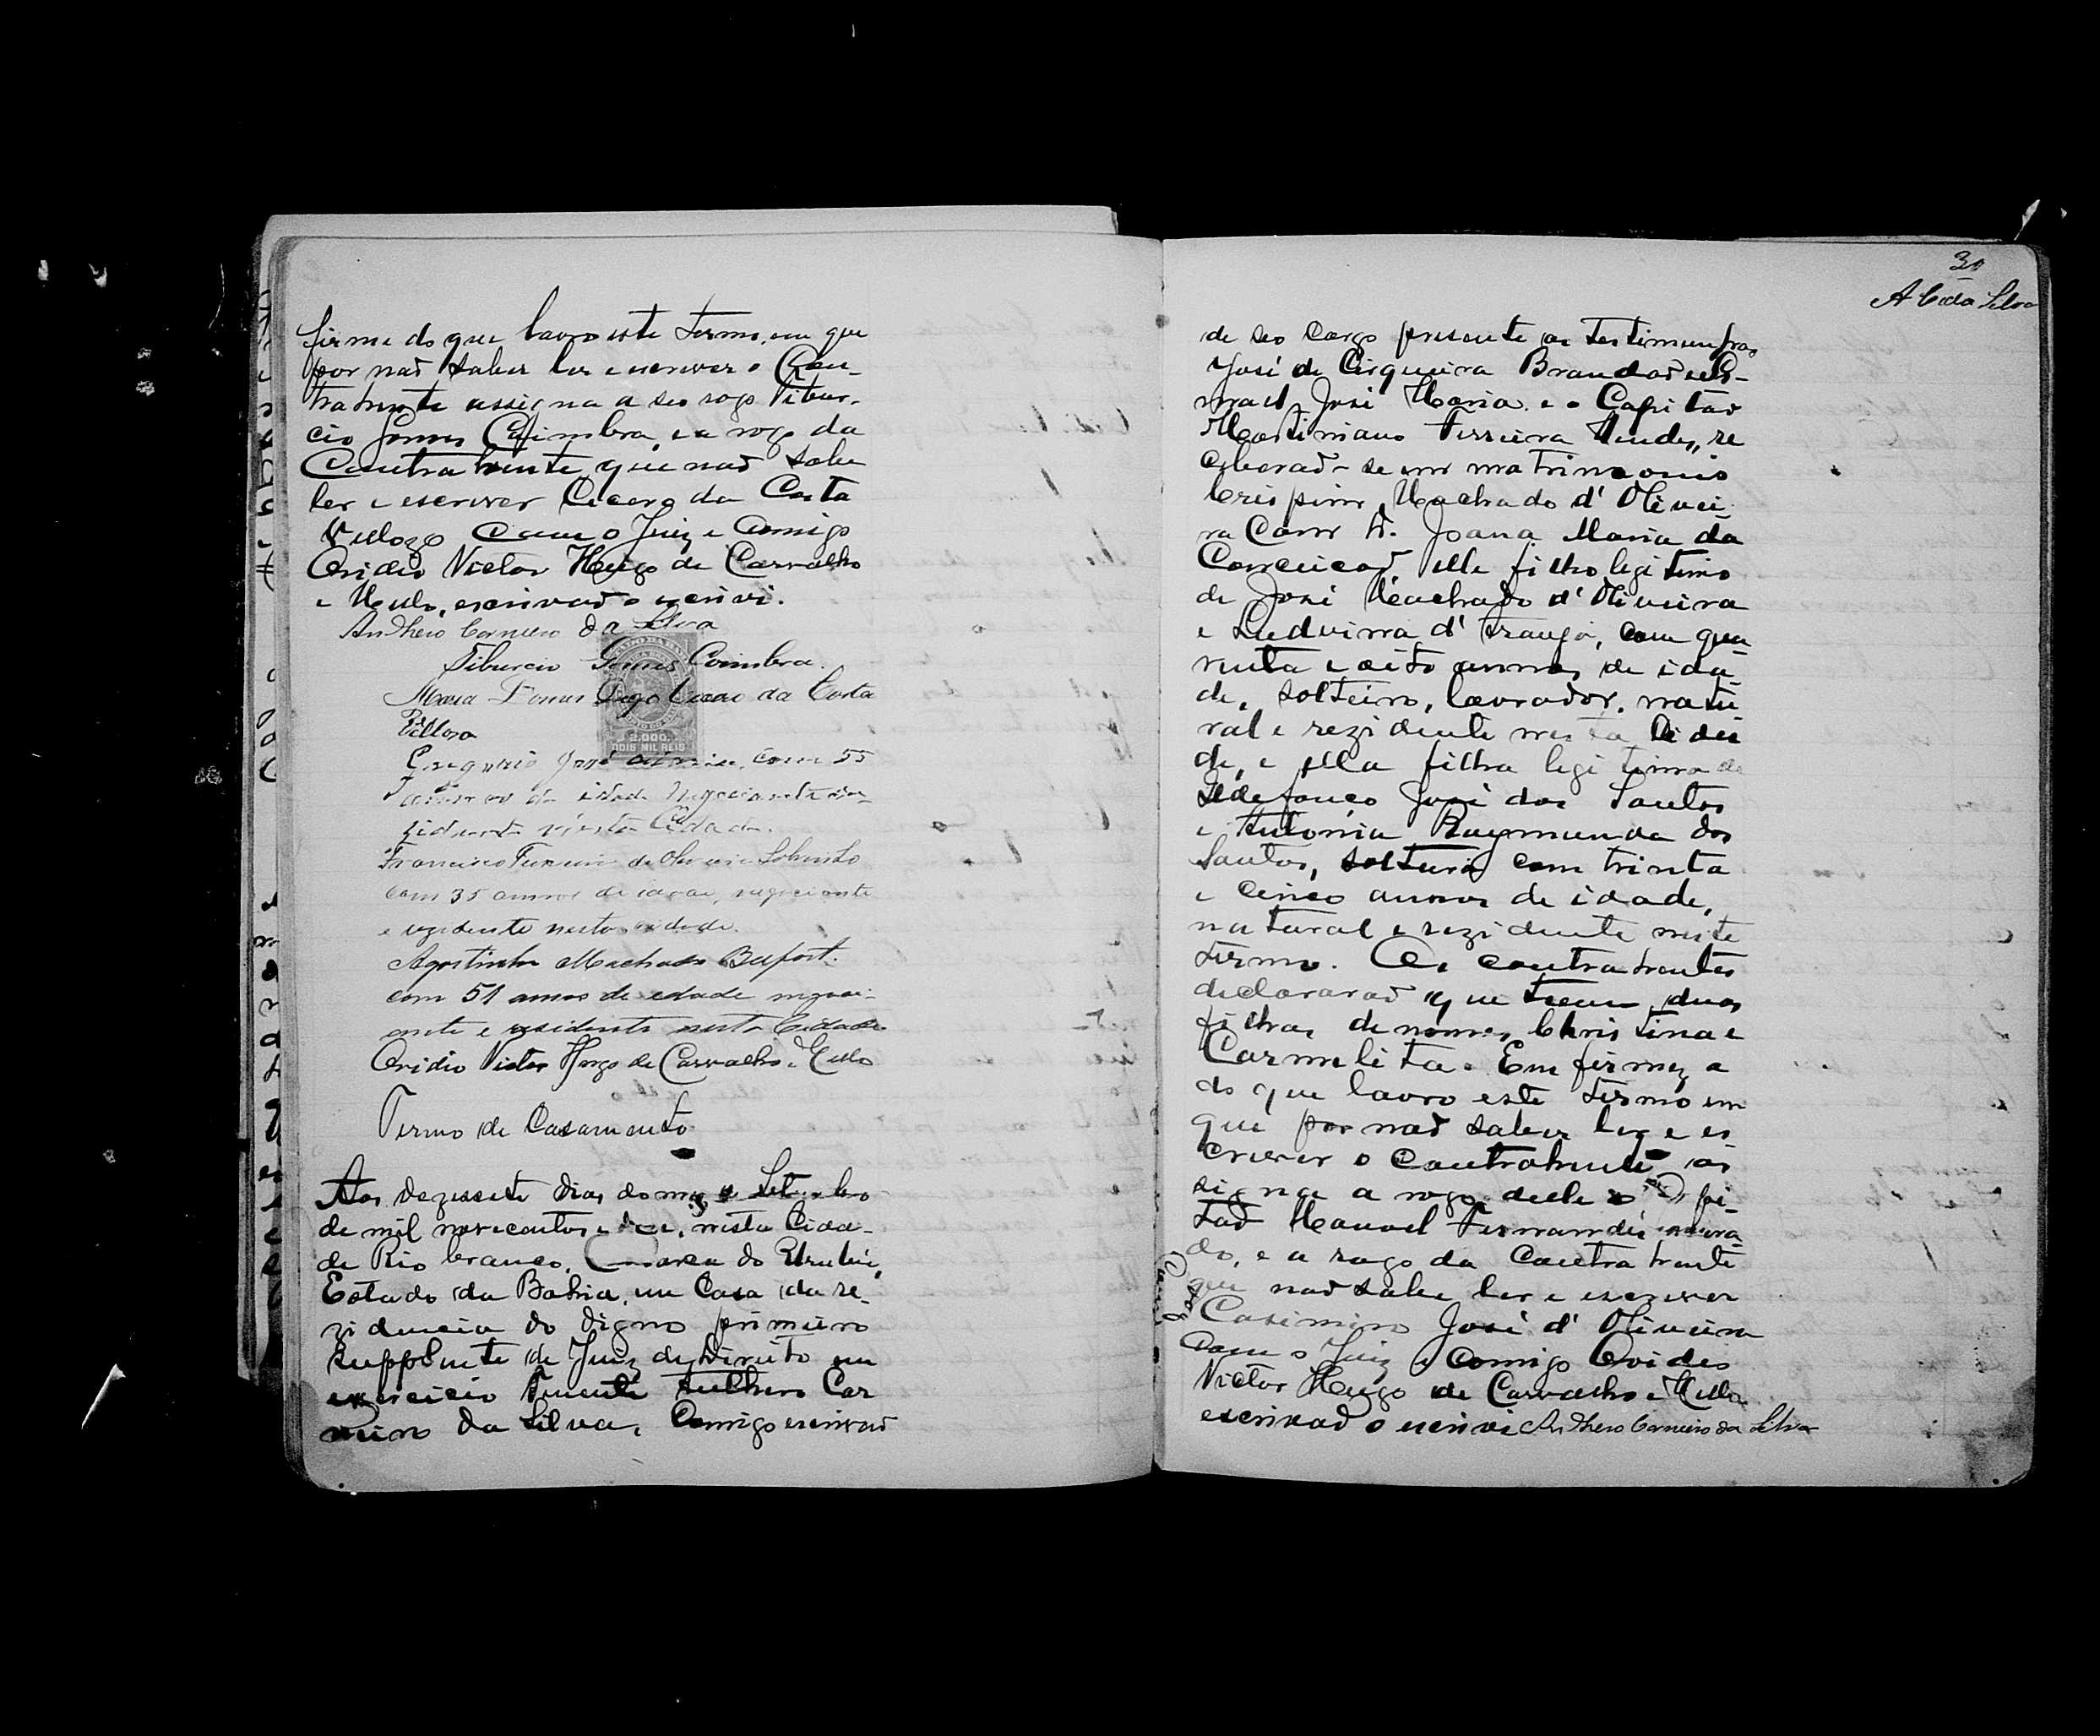 firme do que lavro este termo, em que
por naõ saber ler e escrever o Con-
trahente assigna a seo rogo Tibur-
cio Gomes Coimbra, e a rogo da
Contrahente que naõ sabe
ler e escrever Cicero da Costa
Vellozo com o Juiz e comigo
Ovidio Victor Hugo de Carvalho
e Mello, escrivaõ o escrivi.
Anthero Carneiro da Silva
Tiburcio Gomes Coimbra.
da Costa
Vellozo
2.000.
DOIS MIL REIS
Gregorio José com 55
annos de idade Negociante re-
zidente nesta Cidade.
Francisco de Oliveira Sobrinho
com 35 annos de idade, negociante
e rezidente nesta cidade.
Agostinho Machado Bufort.
com 51 annos de edade negoci-
ante e residente nesta Cidade
Ovidio Victor Hugo de Carvalho e Mello
Termo de Casamento
Aos dezessete dias do mez de Setembro
de mil novecentos e nesta Cida-
de Rio branco, Comarca do Urubú,
Estado da Bahia, em Casa da re-
zidencia do digno primeiro
supplente de Juiz de Direito em
exercicio Tenente Anthero Car
neiro da Silva, Comigo escrivaõ
30
A C da Silva
de seo cargo presente as testimunhas
José de Cirqueira Brandaõ
José Maria e o Capitaõ
Martiniano Ferreira Mendes, re
ceberaõ-se em matrimonio
Crispim Machado d' Olivei
ra Com D. Joana Maria da
Conceicaõ elle filho legitimo
de José Machado d' Oliveira
e Ludvirna d' com qua
renta e oito annos de ida-
de, solteiro, lavrador, natu
ral e rezidente nesta Cida
de, e ella filha legitima de
Ildefonço José dos Santos
e Antonia Raymunda dos
Santos, solteira com trinta
e cinco annos de idade,
natural e rezidente neste
termo. Os contratrentes
declararaõ que teem duas
filhas de nomes Christina e
Carmelita. Em firmeza
do que lavro este termo em
que por naõ saber ler e es
crever o Contrahente as
signa a rogo delle o
Manoel Fernandes
do, e a rogo da Contratrente
que naõ sabe ler e escrever
Casimiro José d' Oliveira
com o Juiz e Comigo Ovidio
Victor Hugo de Carvalho e Mello
escrivaõ o escrivi Anthero Carneiro da Silva